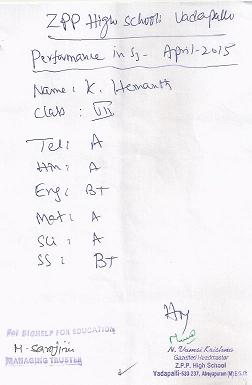 ZPP High school: Vadapalli
Performance in S3- April-2015
Name: K. Hemanth
Class : VII
Tel: A
Hin: A
Eng: B+
Mat: A
Sci: A
SS: B+
For BIGHELP FOR EDUCATION
M. Sarojini
MANAGING TRUSTEE
HM
N. Vamsi Krishna
Gazetted Headmaster
Z.P.P. High School
Vadapalli-533 237, Atreyapuram (M) E.G.Dt.